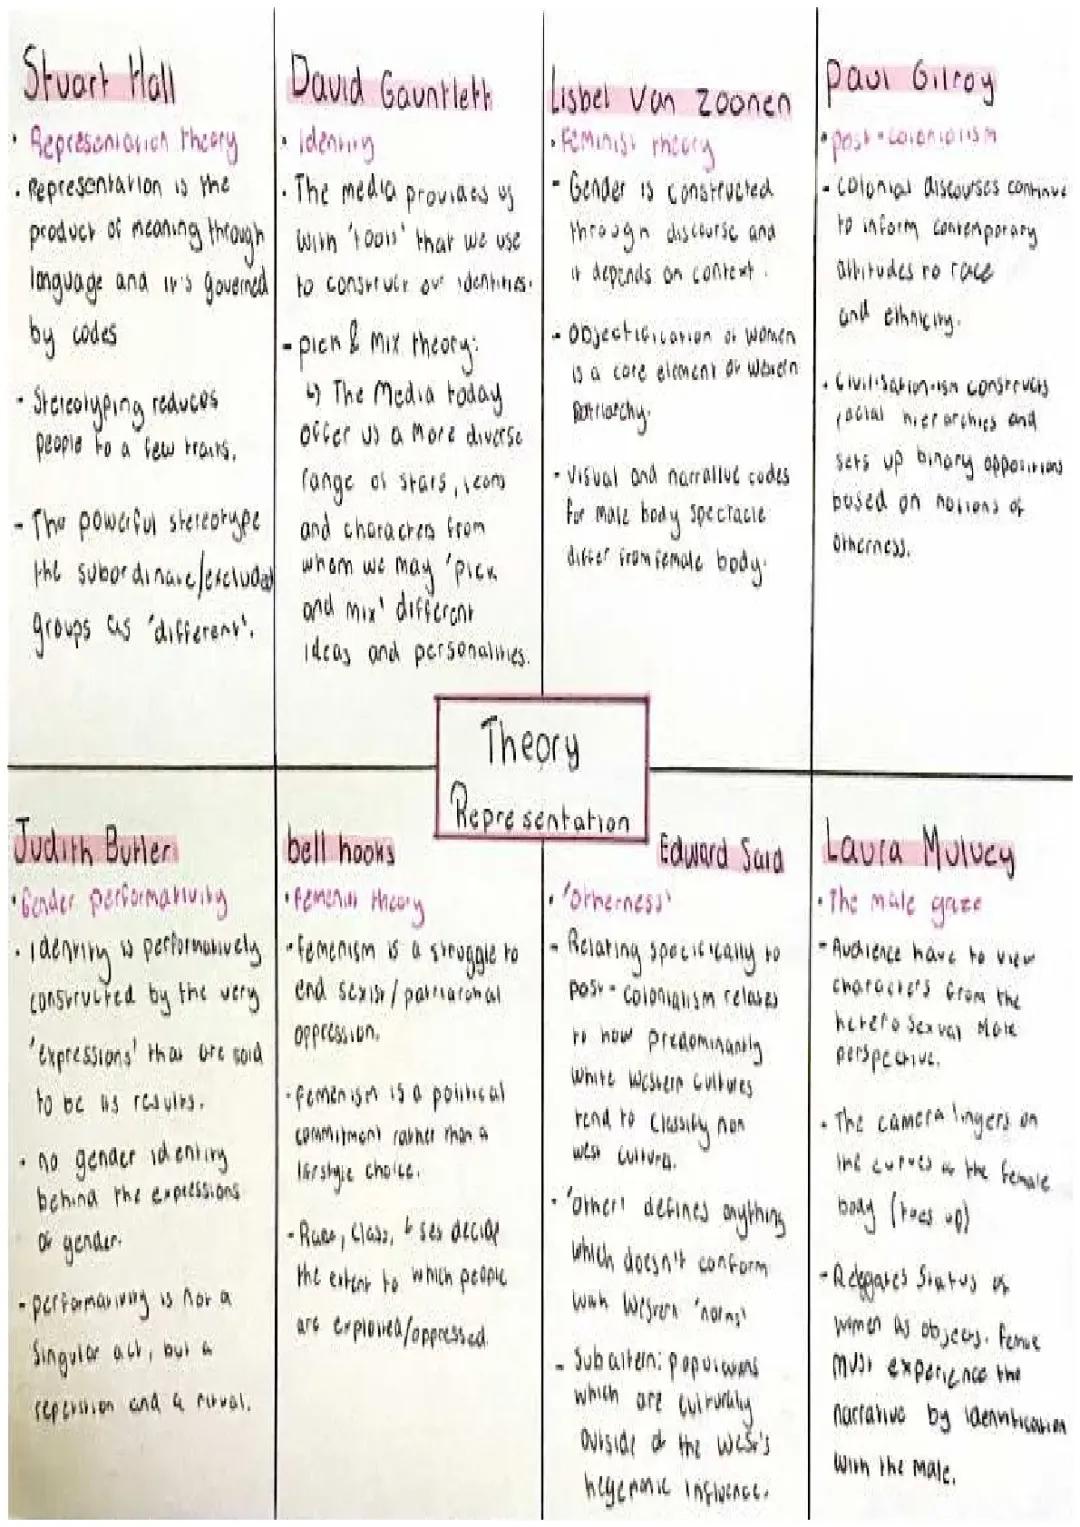 Stuart Hall
• Representation theory
• Representation is the
product of meaning through
language and it's governed
by codes
• Stereotyping reduces
people to a few traits.
- The powerful stereotype
the subordinate/excluded
groups as 'different'.
David Gauntlett
• Identity
• The media provides us
with 'tools' that we use
to construct our identities.
- pick & Mix theory:
↳ The Media today
offer us a more diverse
range of stars, icons
and characters from
whom we may 'pick
and mix' different
ideas and personalities.
Lisbet Van Zoonen
• Feminist theory
- Gender is constructed
through discourse and
it depends on context.
- Objectification of women
is a core element of western
patriarchy.
- visual and narrative codes
for male body spectacle
differ from female body.
Paul Gilroy
• post-colonialism
- colonial discourses continue
to inform contemporary
attitudes to race
and ethnicity.
• Civilisationism constructs
racial hierarchies and
sets up binary oppositions
based on notions of
otherness.
Theory
Representation
Judith Butler
• Gender performativity
• identity is performatively
constructed by the very
'expressions' that are said
to be its results.
• no gender identity
behind the expressions
of gender.
- performativity is not a
singular act, but a
repetition and a ritual.
bell hooks
• Femenist theory
- Femenism is a struggle to
end sexist/patriarchal
oppression.
- femenism is a political
commitment rather than a
lifestyle choice.
- Race, Class, & sex decide
the extent to which people
are exploited/oppressed
Edward Said
• 'Otherness'
- Relating specifically to
post-colonialism relates
to how predominantly
white western cultures
tend to classify non
west culture.
• 'other' defines anything
which doesn't conform
with Western 'norms'
- Subaltern: populations
which are culturally
outside of the West's
hegemonic influence.
Laura Mulvey
• The male gaze
- Audience have to view
characters from the
heterosexual male
perspective.
• The camera lingers on
the curves of the female
body (toes up)
- Relegates status of
women as objects. Female
must experience the
narrative by identification
with the male.